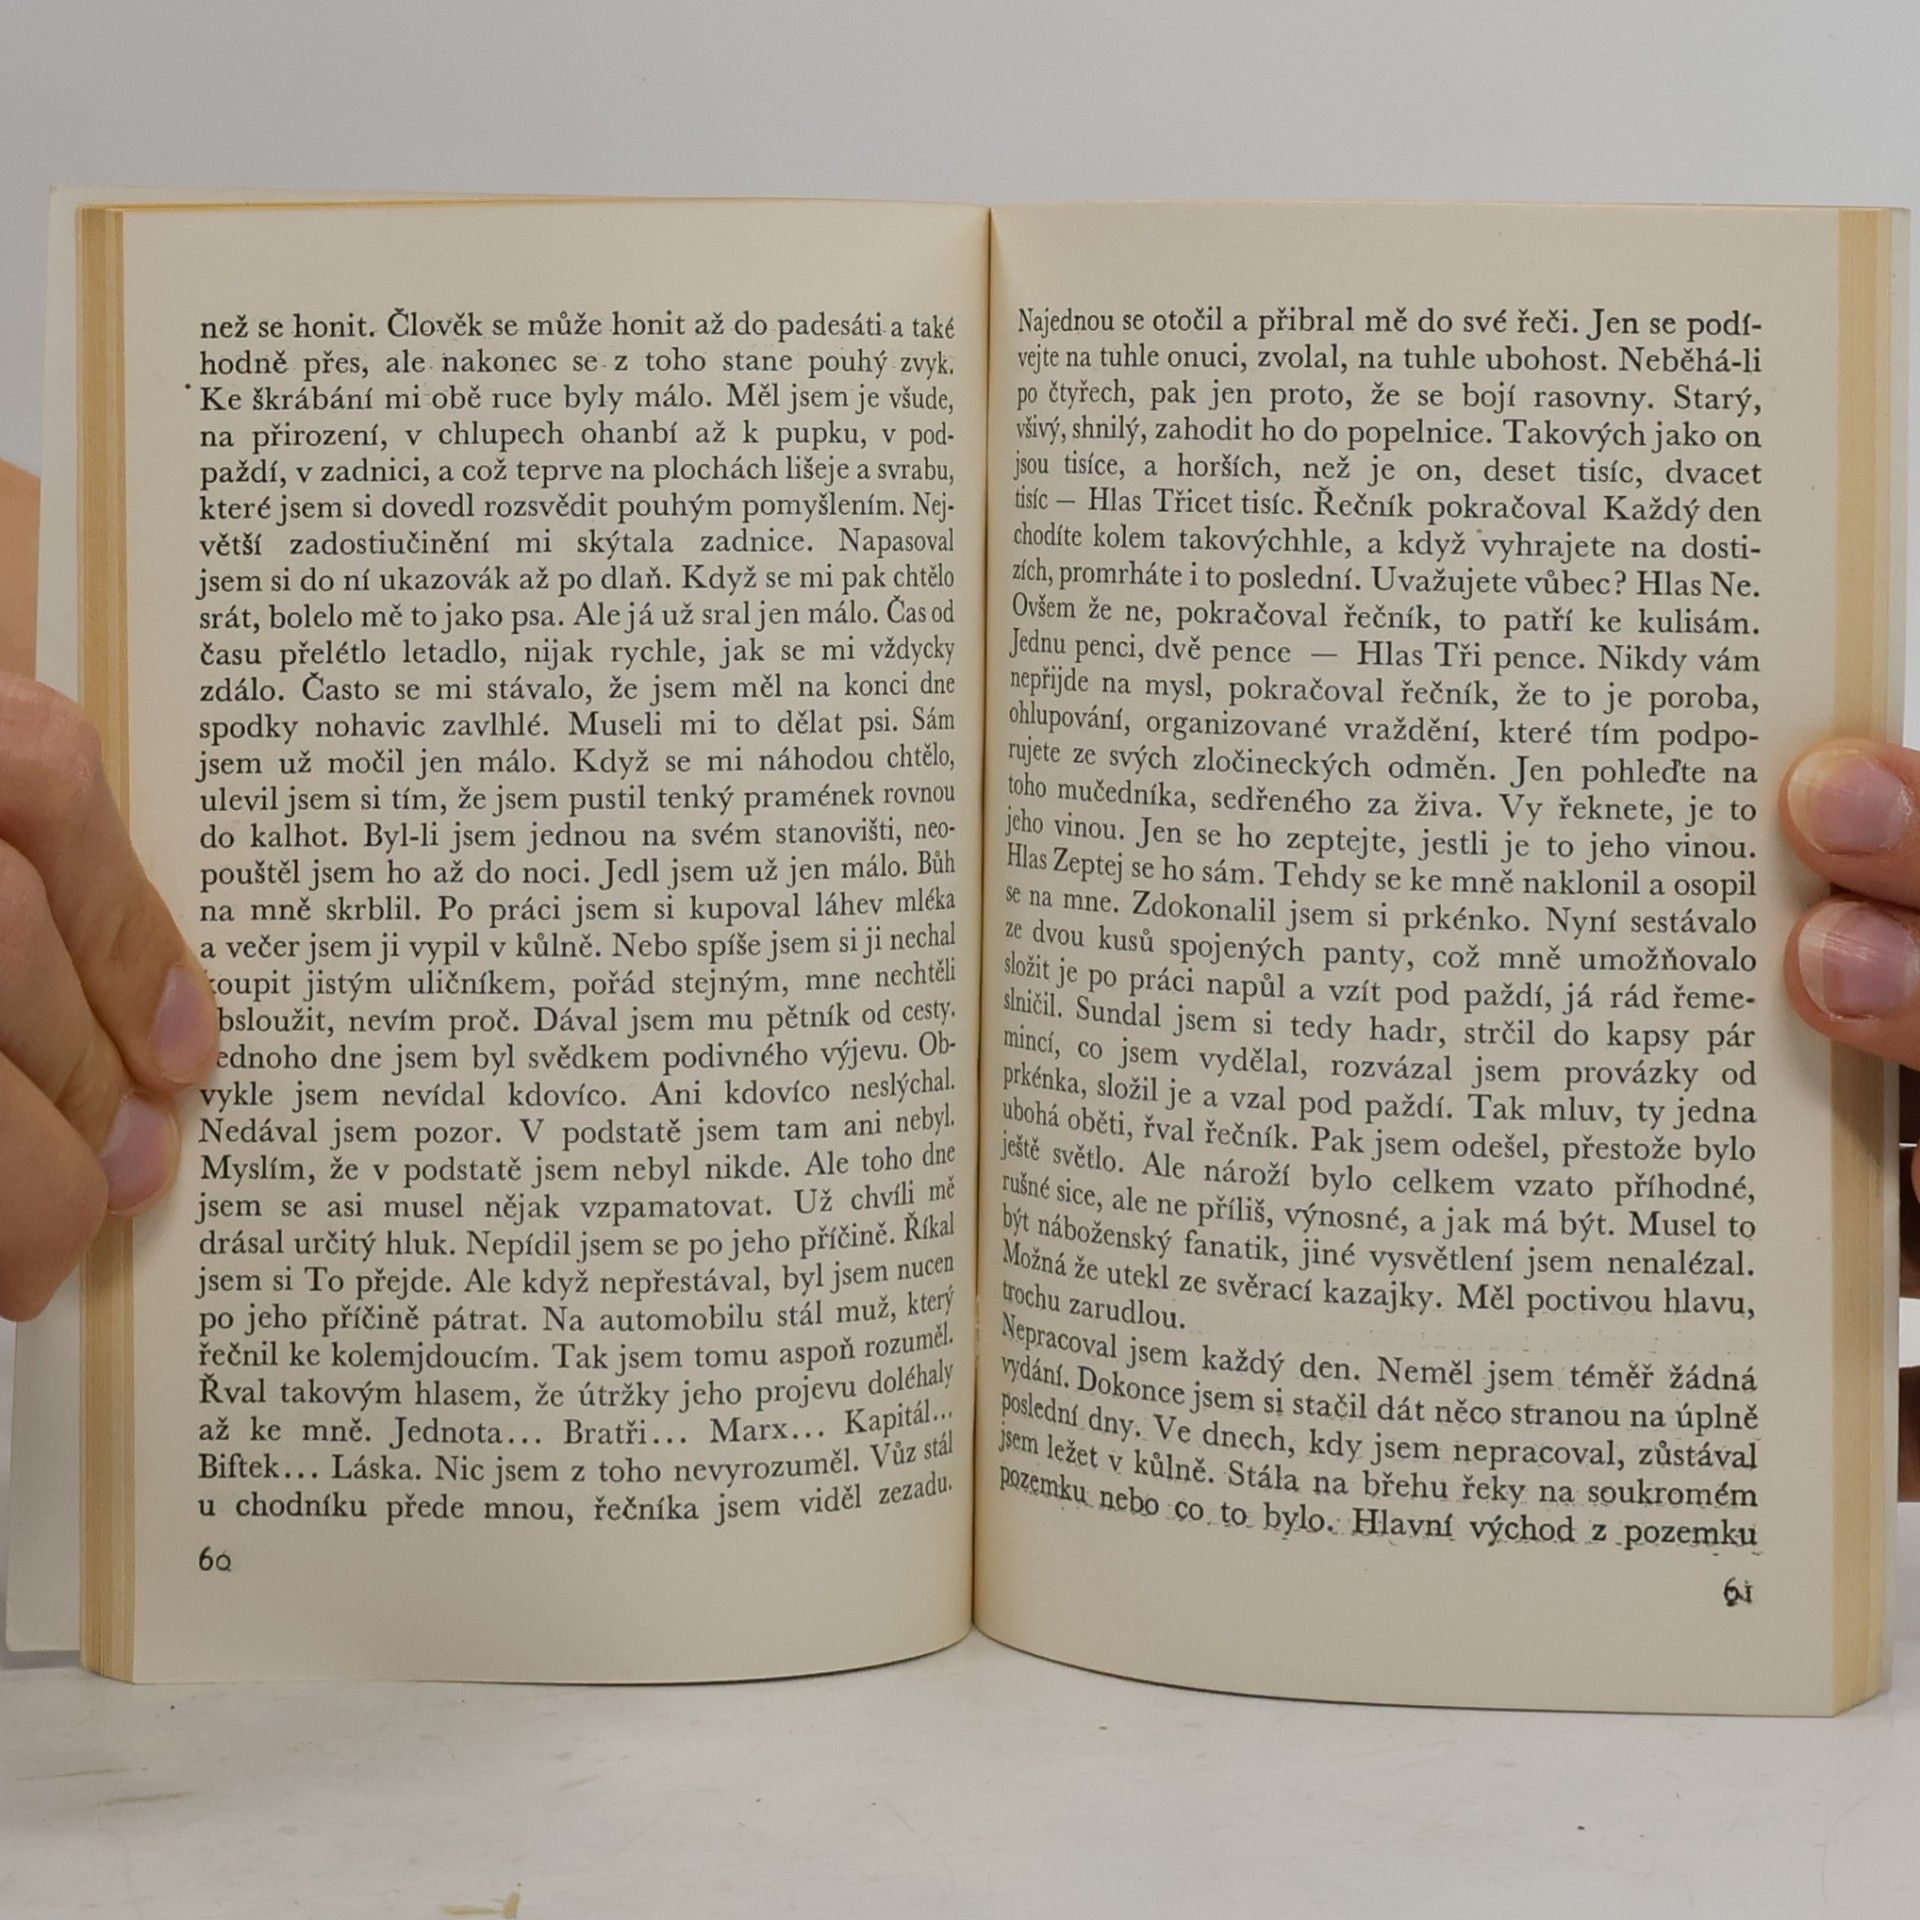 než se honit. Člověk se může honit až do padesáti a také
hodně přes, ale nakonec se z toho stane pouhý zvyk.
Ke škrábání mi obě ruce byly málo. Měl jsem je všude,
na přirození, v chlupech ohanbí až k pupku, v pod-
paždí, v zadnici, a což teprve na plochách lišeje a svrabu,
které jsem si dovedl rozsvědit pouhým pomyšlením. Nej-
větší zadostiučinění mi skýtala zadnice. Napasoval
jsem si do ní ukazovák až po dlaň. Když se mi pak chtělo
srát, bolelo mě to jako psa. Ale já už sral jen málo. Čas od
času přelétlo letadlo, nijak rychle, jak se mi vždycky
zdálo. Často se mi stávalo, že jsem měl na konci dne
spodky nohavic zavlhlé. Museli mi to dělat psi. Sám
jsem už močil jen málo. Když se mi náhodou chtělo,
ulevil jsem si tím, že jsem pustil tenký pramének rovnou
do kalhot. Byl-li jsem jednou na svém stanovišti, neo-
pouštěl jsem ho až do noci. Jedl jsem už jen málo. Bůh
na mně skrblil. Po práci jsem si kupoval láhev mléka
a večer jsem ji vypil v kůlně. Nebo spíše jsem si ji nechal
koupit jistým uličníkem, pořád stejným, mne nechtěli
obsloužit, nevím proč. Dával jsem mu pětník od cesty.
Jednoho dne jsem byl svědkem podivného výjevu. Ob-
vykle jsem nevídal kdovíco. Ani kdovíco neslýchal.
Nedával jsem pozor. V podstatě jsem tam ani nebyl.
Myslím, že v podstatě jsem nebyl nikde. Ale toho dne
jsem se asi musel nějak vzpamatovat. Už chvíli mě
drásal určitý hluk. Nepídil jsem se po jeho příčině. Říkal
jsem si To přejde. Ale když nepřestával, byl jsem nucen
po jeho příčině pátrat. Na automobilu stál muž, který
řečnil ke kolemjdoucím. Tak jsem tomu aspoň rozuměl.
Řval takovým hlasem, že útržky jeho projevu doléhaly
až ke mně. Jednota... Bratři... Marx... Kapitál...
Biftek... Láska. Nic jsem z toho nevyrozuměl. Vůz stál
u chodníku přede mnou, řečníka jsem viděl zezadu.
60
Najednou se otočil a přibral mě do své řeči. Jen se podí-
vejte na tuhle onuci, zvolal, na tuhle ubohost. Neběhá-li
po čtyřech, pak jen proto, že se bojí rasovny. Starý,
všivý, shnilý, zahodit ho do popelnice. Takových jako on
jsou tisíce, a horších, než je on, deset tisíc, dvacet
tisíc — Hlas Třicet tisíc. Řečník pokračoval Každý den
chodíte kolem takovýchhle, a když vyhrajete na dosti-
zích, promrháte i to poslední. Uvažujete vůbec? Hlas Ne.
Ovšem že ne, pokračoval řečník, to patří ke kulisám.
Jednu penci, dvě pence — Hlas Tři pence. Nikdy vám
nepřijde na mysl, pokračoval řečník, že to je poroba,
ohlupování, organizované vraždění, které tím podpo-
rujete ze svých zločineckých odměn. Jen pohleďte na
toho mučedníka, sedřeného za živa. Vy řeknete, je to
jeho vinou. Jen se ho zeptejte, jestli je to jeho vinou.
Hlas Zeptej se ho sám. Tehdy se ke mně naklonil a osopil
se na mne. Zdokonalil jsem si prkénko. Nyní sestávalo
ze dvou kusů spojených panty, což mně umožňovalo
složit je po práci napůl a vzít pod paždí, já rád řeme-
slničil. Sundal jsem si tedy hadr, strčil do kapsy pár
mincí, co jsem vydělal, rozvázal jsem provázky od
prkénka, složil je a vzal pod paždí. Tak mluv, ty jedna
ubohá oběti, řval řečník. Pak jsem odešel, přestože bylo
ještě světlo. Ale nároží bylo celkem vzato příhodné,
rušné sice, ale ne příliš, výnosné, a jak má být. Musel to
být náboženský fanatik, jiné vysvětlení jsem nenalézal.
Možná že utekl ze svěrací kazajky. Měl poctivou hlavu,
trochu zarudlou.
Nepracoval jsem každý den. Neměl jsem téměř žádná
vydání. Dokonce jsem si stačil dát něco stranou na úplně
poslední dny. Ve dnech, kdy jsem nepracoval, zůstával
jsem ležet v kůlně. Stála na břehu řeky na soukromém
pozemku nebo co to bylo. Hlavní východ z pozemku
61